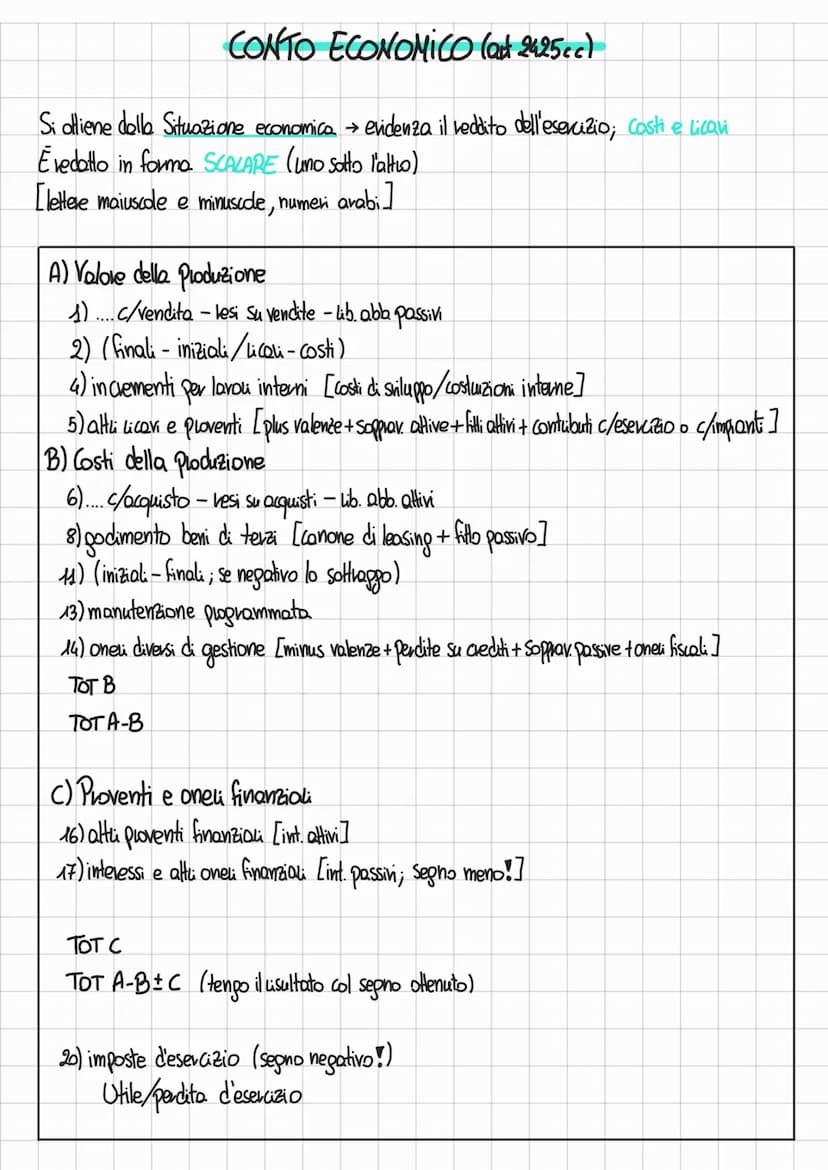 CONTO ECONOMICO (art 2425cc)
Si ottiene dalla Situazione economica → evidenza il reddito dell'esercizio; costi e ricavi
È redatto in forma SCALARE (uno sotto l'altro)
[lettere maiuscole e minuscole, numeri arabi]
A) Valore della Produzione
1) .... c/vendita - resi su vendite - rib. abb. passivi
2) (finali - iniziali/ricavi - costi)
4) incrementi per lavori interni [costi di sviluppo/costruzioni interne]
5) altri ricavi e proventi [plus valenze + soprav. attive + fitti attivi + contributi c/esercizio o c/impianti]
B) Costi della Produzione
6) .... c/acquisto - resi su acquisti - rib. abb. attivi
8) godimento beni di terzi [canone di leasing + fitto passivo]
11) (iniziali - finali; se negativo lo sottraggo)
13) manutenzione programmata
14) oneri diversi di gestione [minus valenze + perdite su crediti + soprav. passive + oneri fiscali]
TOT B
TOT A-B
C) Proventi e oneri finanziari
16) altri proventi finanziari [int. attivi]
17) interessi e altri oneri finanziari [int. passivi; segno meno!]
TOT C
TOT A-B±C (tengo il risultato col segno ottenuto)
20) imposte d'esercizio (segno negativo!)
Utile/perdita d'esercizio